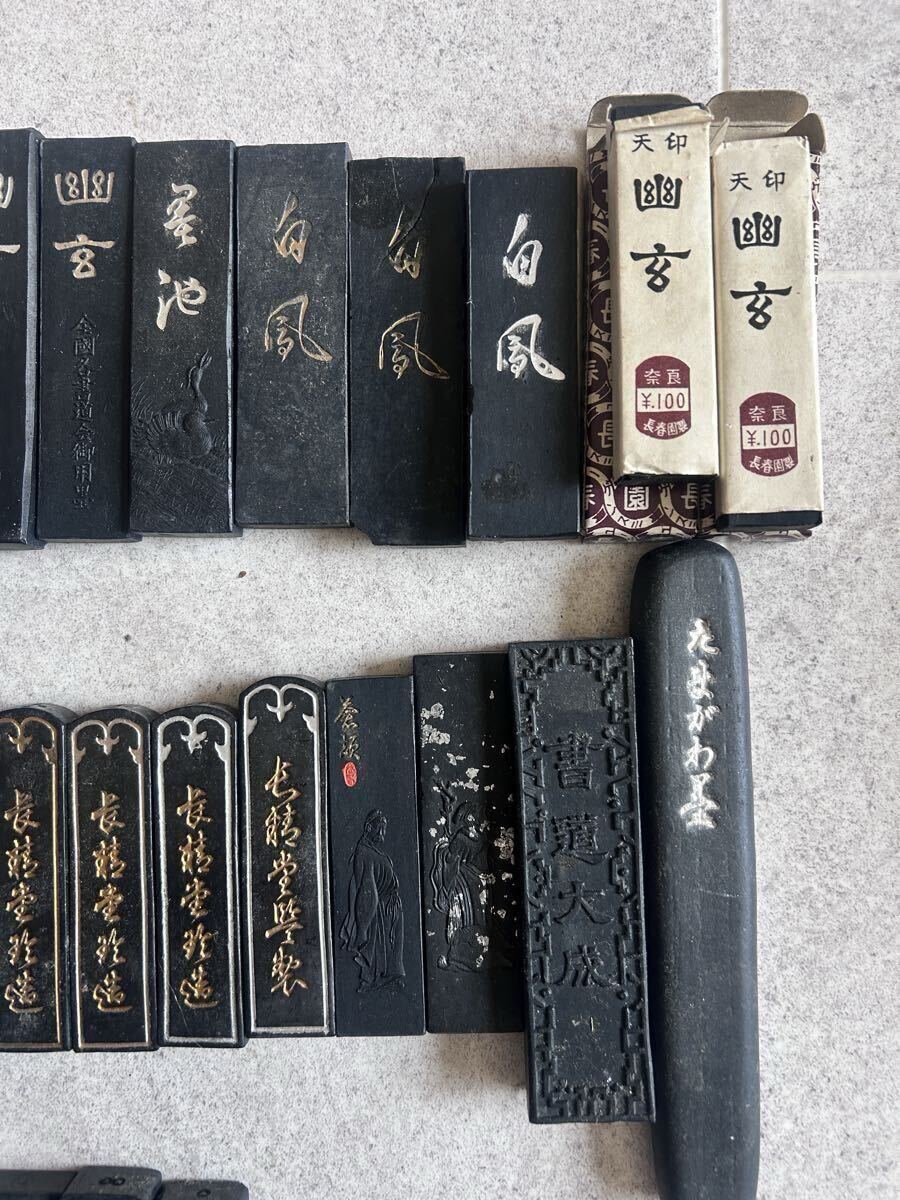 幽玄
全國名書道家御用墨
墨池
白鳳
白鳳
白鳳
天印
幽玄
奈良
¥.100
長春園製
天印
幽玄
奈良
¥.100
長春園製
長精堂珍造
長精堂珍造
長精堂珍造
長精堂監製
蒼頡
書道大成
たまがわ墨
8